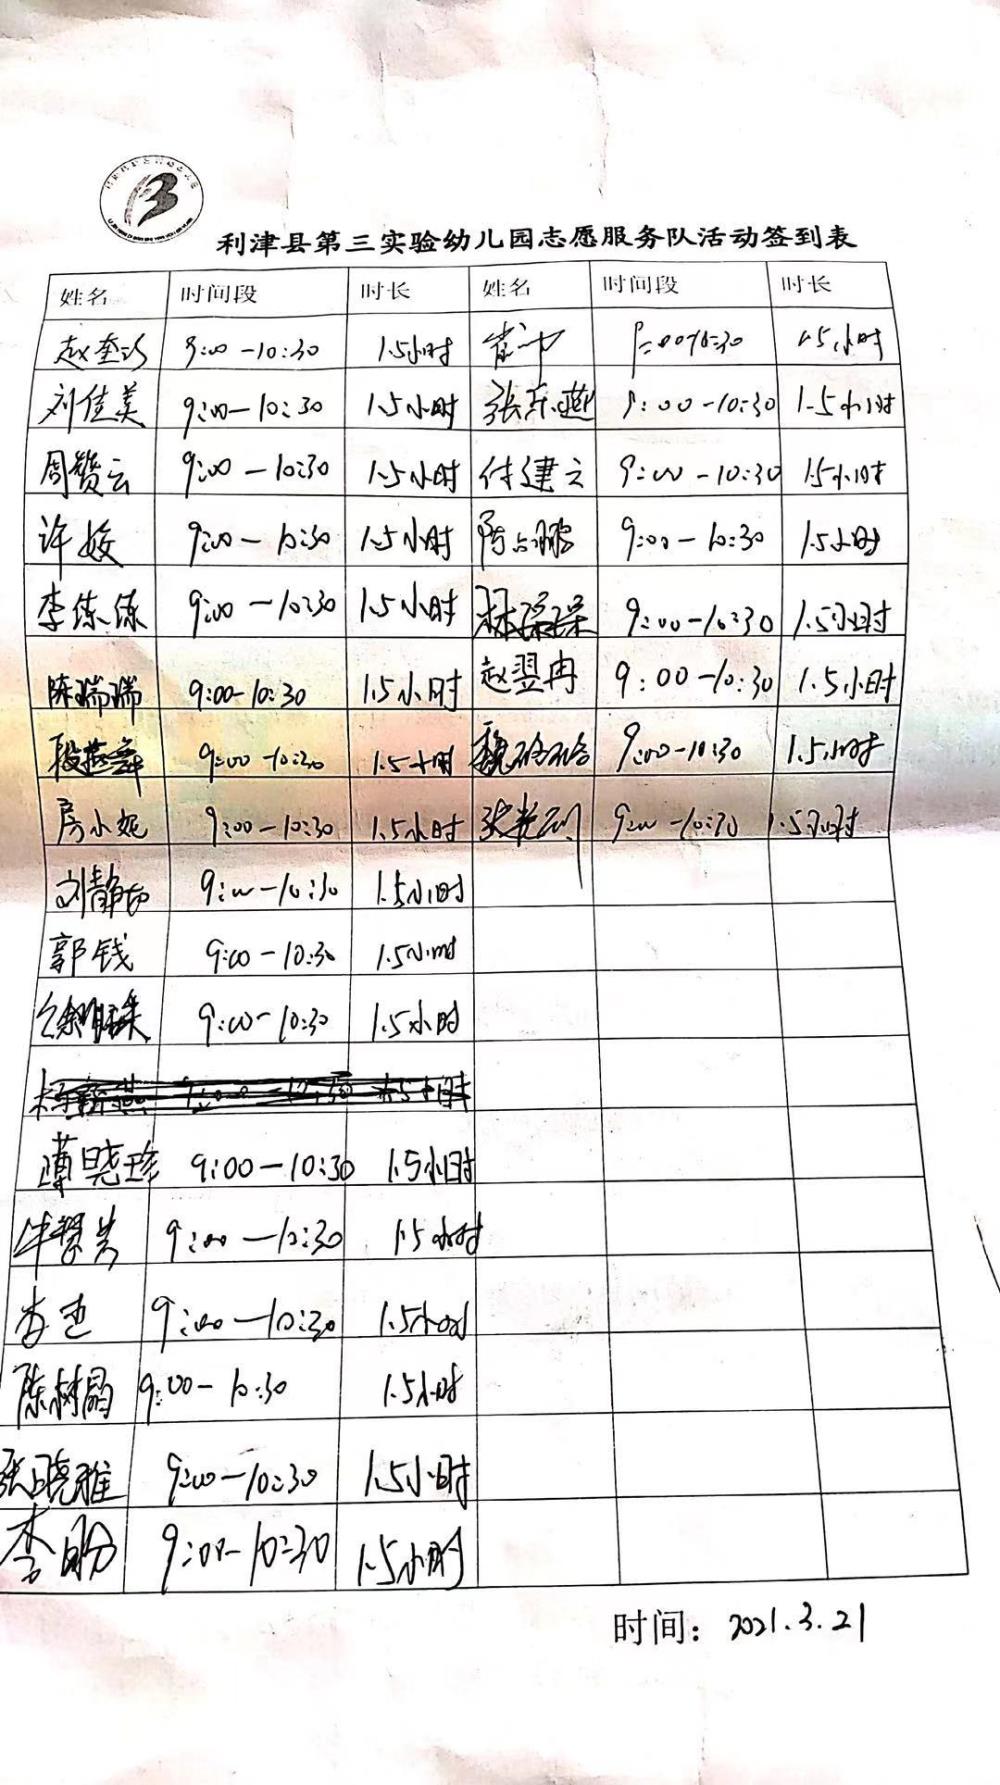 利津县第三实验幼儿园志愿服务队活动签到表
姓名 时间段 时长 姓名 时间段 时长
9:00-10:30 1.5小时 1.5小时
刘佳美 9:00-10:30 1.5小时 张东燕 9:00-10:30 1.5小时
周赞云 9:00-10:30 1.5小时 付建云 9:00-10:30 1.5小时
许姣 9:00-10:30 1.5小时 9:00-10:30 1.5小时
李练练 9:00-10:30 1.5小时 林琛琛 9:00-10:30 1.5小时
陈瑞瑞 9:00-10:30 1.5小时 赵翌冉 9:00-10:30 1.5小时
段燕舞 9:00-10:30 1.5小时 魏砳砳 9:00-10:30 1.5小时
房小妮 9:00-10:30 1.5小时 9:00-10:30 1.5小时
刘静茹 9:00-10:30 1.5小时
郭钱 9:00-10:30 1.5小时
徐明珠 9:00-10:30 1.5小时
晓珍 9:00-10:30 1.5小时
9:00-10:30 1.5小时
9:00-10:30 1.5小时
陈树晶 9:00-10:30 1.5小时
张晓雅 9:00-10:30 1.5小时
李盼 9:00-10:30 1.5小时
时间：2021.3.21